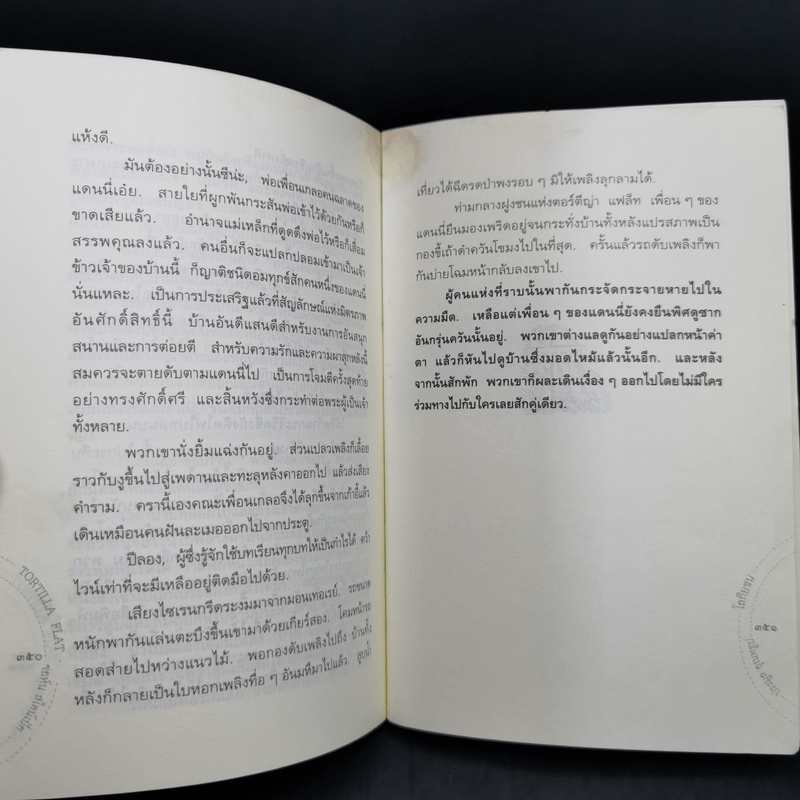 แห้งดี.
มันต้องอย่างนั้นซีน่ะ, พ่อเพื่อนเกลอคนฉลาดของ
แดนนี่เอ๋ย. สายใยที่ผูกพันกระสันพ่อเข้าไว้ด้วยกันหรือก็
ขาดเสียแล้ว. อำนาจแม่เหล็กที่ดูดดึงพ่อไว้หรือก็เสื่อม
สรรพคุณลงแล้ว. คนอื่นก็จะแปลกปลอมเข้ามาเป็นเจ้า
ข้าวเจ้าของบ้านนี้ ก็ญาติชนิดอมทุกข์สักคนหนึ่งของแดนนี่
นั่นแหละ. เป็นการประเสริฐแล้วที่สัญลักษณ์แห่งมิตรภาพ
อันศักดิ์สิทธิ์นี้ บ้านอันดีแสนดีสำหรับงานการอันสนุก
สนานและการต่อยตี สำหรับความรักและความผาสุกหลังนี้
สมควรจะตายดับตามแดนนี่ไป เป็นการโจมตีครั้งสุดท้าย
อย่างทรงศักดิ์ศรี และสิ้นหวังซึ่งกระทำต่อพระผู้เป็นเจ้า
ทั้งหลาย.
พวกเขานั่งยิ้มแฉ่งกันอยู่. ส่วนเปลวเพลิงก็เลื้อย
ราวกับงูขึ้นไปสู่เพดานและทะลุหลังคาออกไป แล้วส่งเสียง
คำราม. ครานี้เองคณะเพื่อนเกลอจึงได้ลุกขึ้นจากเก้าอี้แล้ว
เดินเหมือนคนฝันละเมอออกไปจากประตู.
ปีลอง, ผู้ซึ่งรู้จักใช้บทเรียนทุกบทให้เป็นกำไรได้ คว้า
ไวน์เท่าที่จะมีเหลืออยู่ติดมือไปด้วย.
เสียงไซเรนกรีดระงมมาจากมอนเทอเรย์. รถขนาด
หนักพากันแล่นตะบึงขึ้นเขามาด้วยเกียร์สอง. โคมหน้ารถ
สอดส่ายไปหว่างแนวไม้. พอกองดับเพลิงไปถึง บ้านทั้ง
หลังก็กลายเป็นใบหอกเพลิงทื่อ ๆ อันมหึมาไปแล้ว. สูบน้ำ
TORTILLA FLAT
๓๕๐
จอห์น สไตน์เบ็ค
เที่ยวได้ฉีดรดป่าพงรอบ ๆ มิให้เพลิงลุกลามได้.
ท่ามกลางฝูงชนแห่งตอร์ตีญ่า แฟล็ท เพื่อน ๆ ของ
แดนนี่ยืนมองเพริดอยู่จนกระทั่งบ้านทั้งหลังแปรสภาพเป็น
กองขี้เถ้าดำควันโขมงไปในที่สุด. ครั้นแล้วรถดับเพลิงก็พา
กันบ่ายโฉมหน้ากลับลงเขาไป.
ผู้คนแห่งที่ราบนั้นพากันกระจัดกระจายหายไปใน
ความมืด. เหลือแต่เพื่อน ๆ ของแดนนี่ยังคงยืนพิศดูซาก
อันกรุ่นควันนั้นอยู่. พวกเขาต่างแลดูกันอย่างแปลกหน้าค่า
ตา แล้วก็หันไปดูบ้านซึ่งมอดไหม้แล้วนั้นอีก. และหลัง
จากนั้นสักพัก พวกเขาก็ผละเดินเงื่อง ๆ ออกไปโดยไม่มีใคร
ร่วมทางไปกับใครเลยสักคู่เดียว.
โลกียชน
๓๕๑